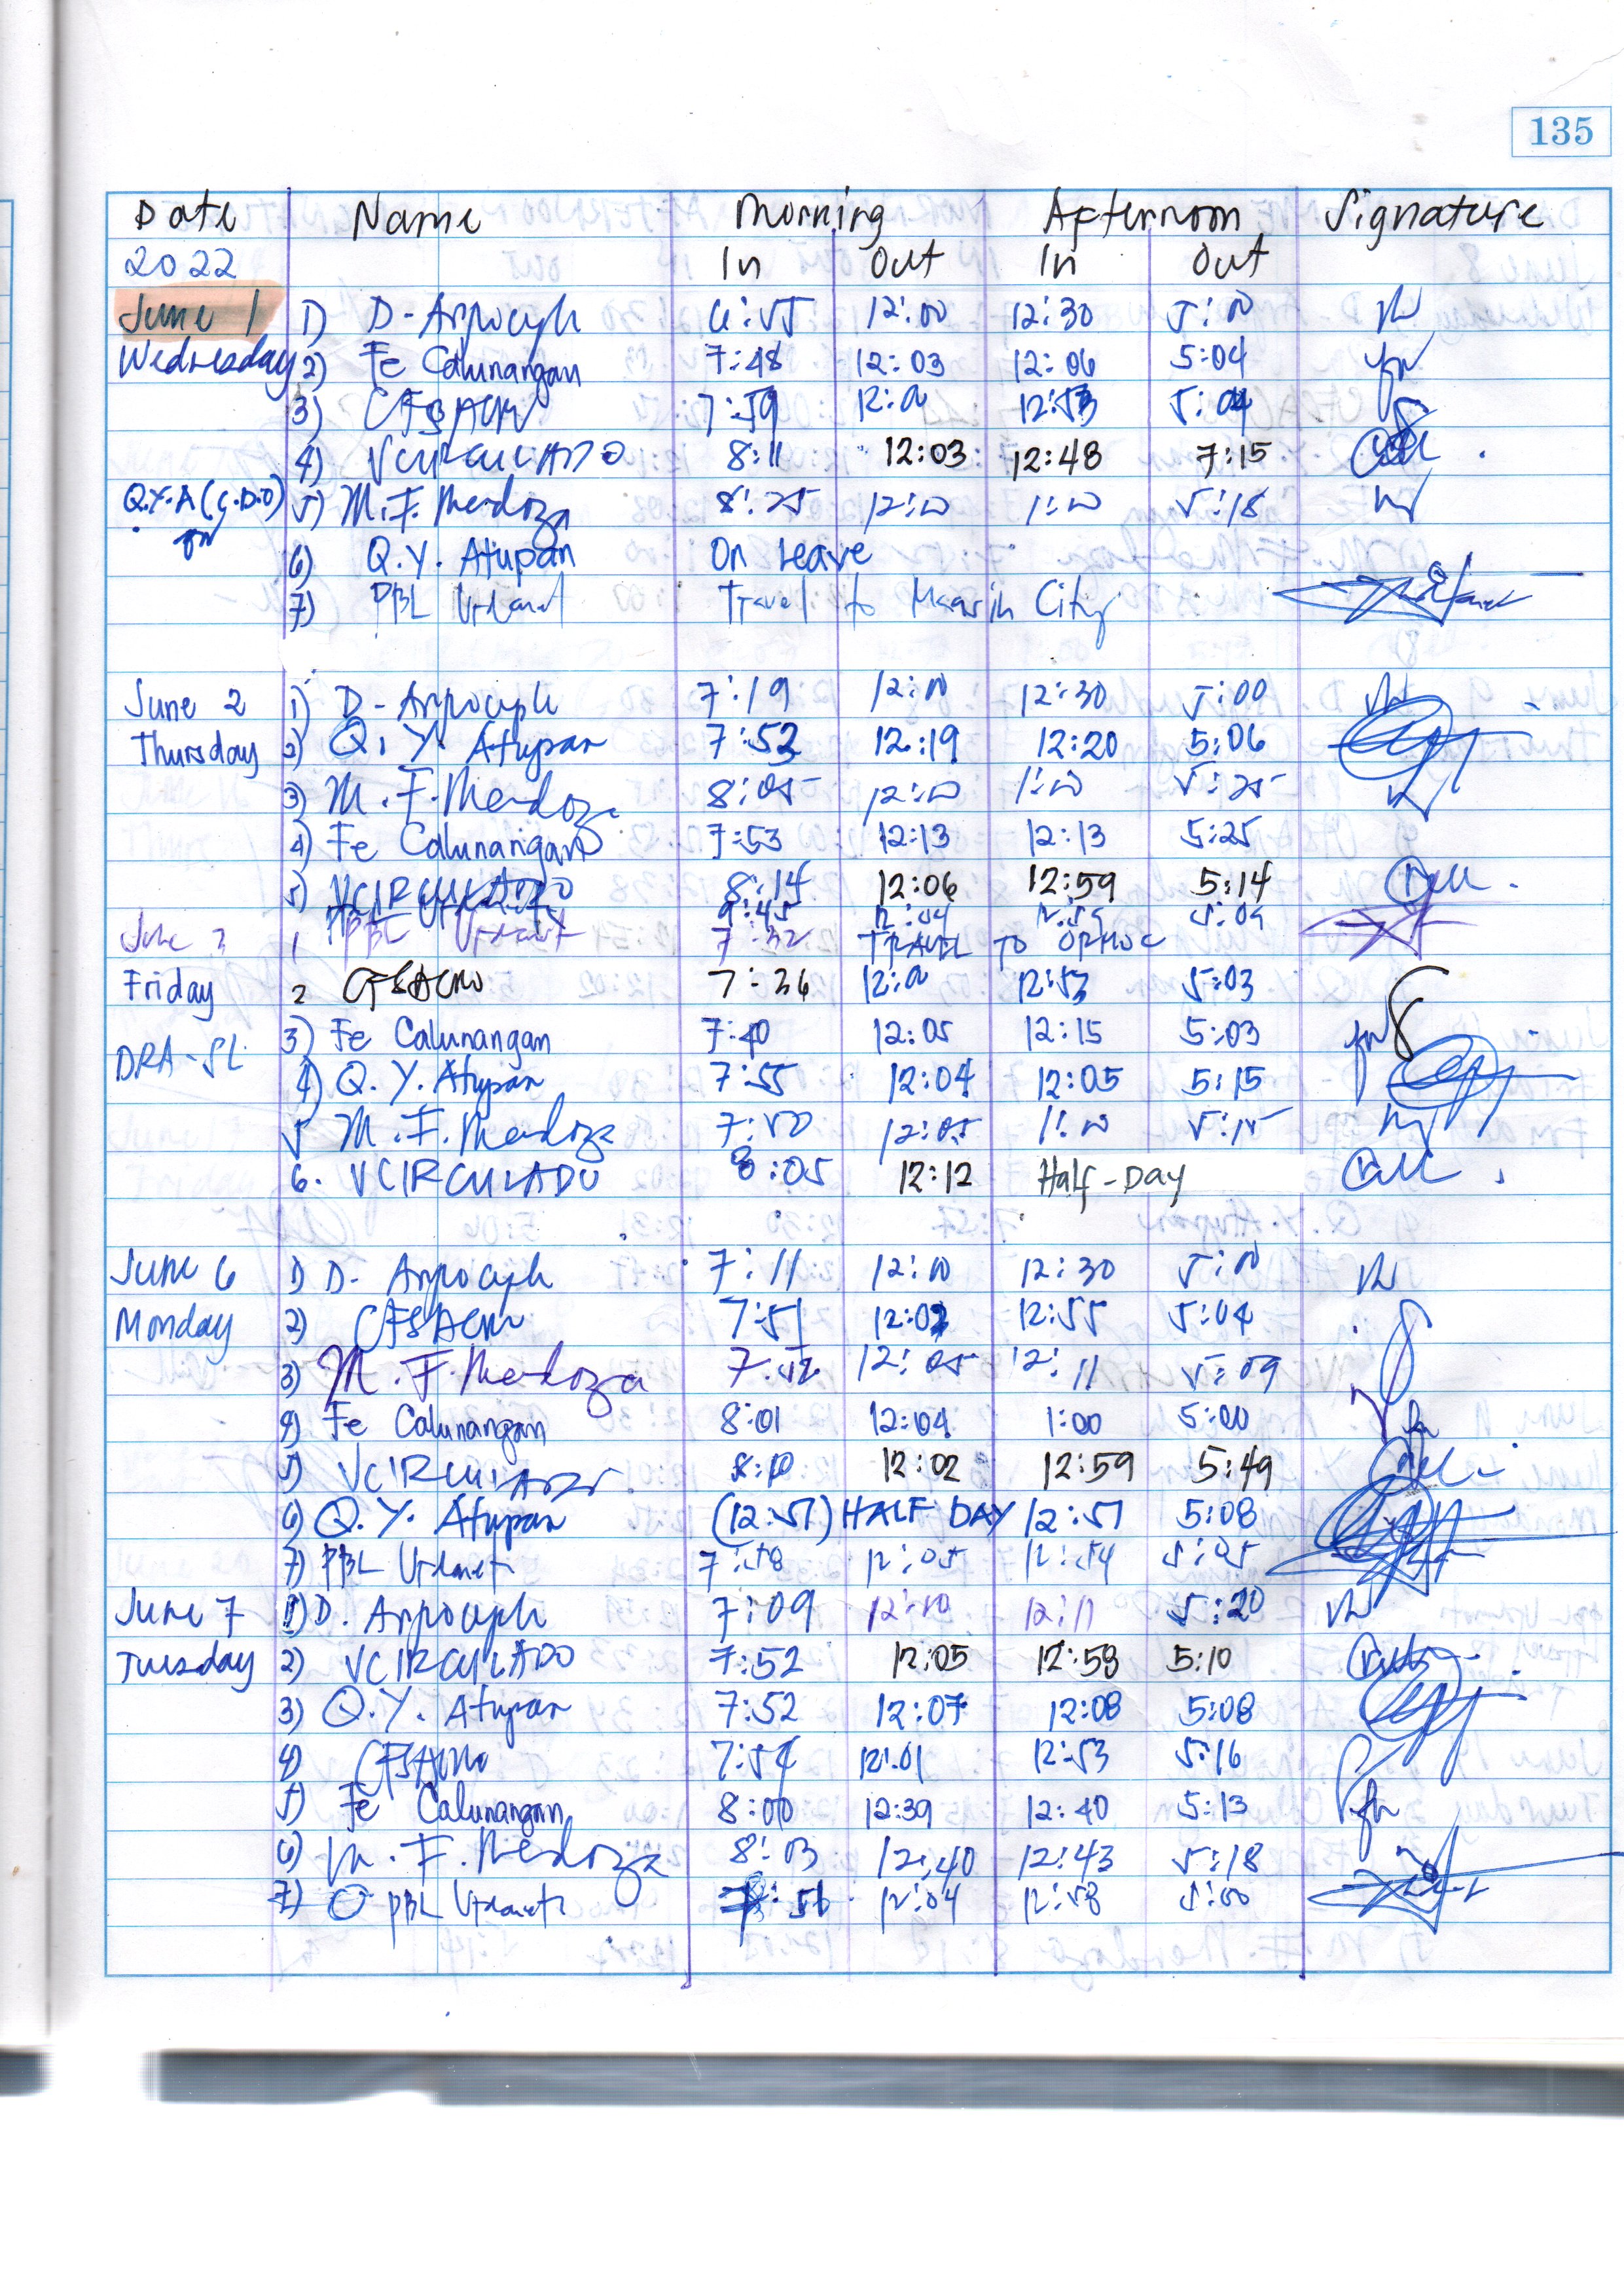 135
Date Name Morning Afternoon Signature
2022 In Out In Out
June 1 1) D- 6:55 12:00 12:30 5:00
Wednesday 2) Fe Calunangan 7:48 12:03 12:06 5:04
3) 7:59 12:53 5:04
4) VCIRCULADO 8:11 12:03 12:48 7:15
Q.Y.A (C.D.O) 5) M.F. Mendoza 8:25 12:00 1:00 5:18
6) Q.Y. Atupan On Leave
7) PBL Travel to Maasin City
June 2 1) D- 7:19 12:00 12:30 5:00
Thursday 2) Q. Y. Atupan 7:52 12:19 12:20 5:06
3) M. F. Mendoza 8:05 12:00 1:00 5:25
4) Fe Calunangan 7:53 12:13 12:13 5:25
5) VCIRCULADO 8:14 12:06 12:59 5:14
PBL 9:45 12:04 12:59 5:09
June 3 1 PBL 7:32 TRAVEL TO ORMOC
Friday 2 7:36 12:53 5:03
3) Fe Calunangan 7:40 12:05 12:15 5:03
DRA-SL 4) Q. Y. Atupan 7:55 12:04 12:05 5:15
5 M. F. Mendoza 7:50 12:05 1:00 5:15
6. VCIRCULADO 8:05 12:12 Half-Day
June 6 1) D- 7:11 12:00 12:30 5:00
Monday 2) 7:51 12:02 12:55 5:04
3) M. F. Mendoza 7:52 12:05 12:11 5:09
4) Fe Calunangan 8:01 12:04 1:00 5:00
5) VCIRCULADO 8:10 12:02 12:59 5:49
6) Q. Y. Atupan (12:51) HALF DAY 12:51 5:08
7) PBL 7:58 12:05 12:54 5:05
June 7 1) D. 7:09 12:10 12:11 5:20
Tuesday 2) VCIRCULADO 7:52 12:05 12:58 5:10
3) Q.Y. Atupan 7:52 12:07 12:08 5:08
4) 7:54 12:01 12:53 5:16
5) Fe Calunangan 8:00 12:39 12:40 5:13
6) M. F. Mendoza 8:03 12:40 12:43 5:18
7) PBL 12:04 12:58 5:00